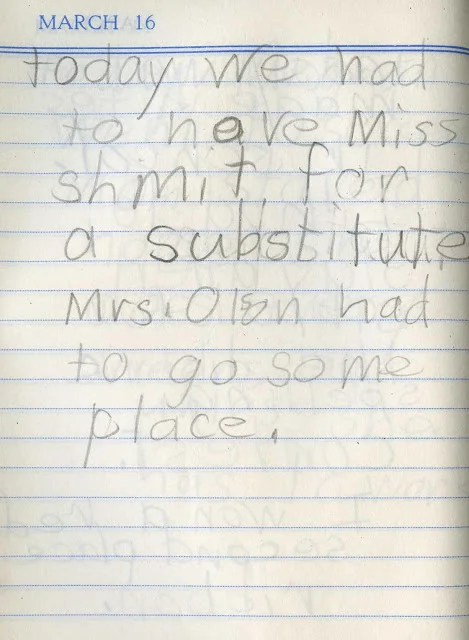 MARCH 16
today we had
to have Miss
shmit for
a substitute
Mrs. Olson had
to go some
place.